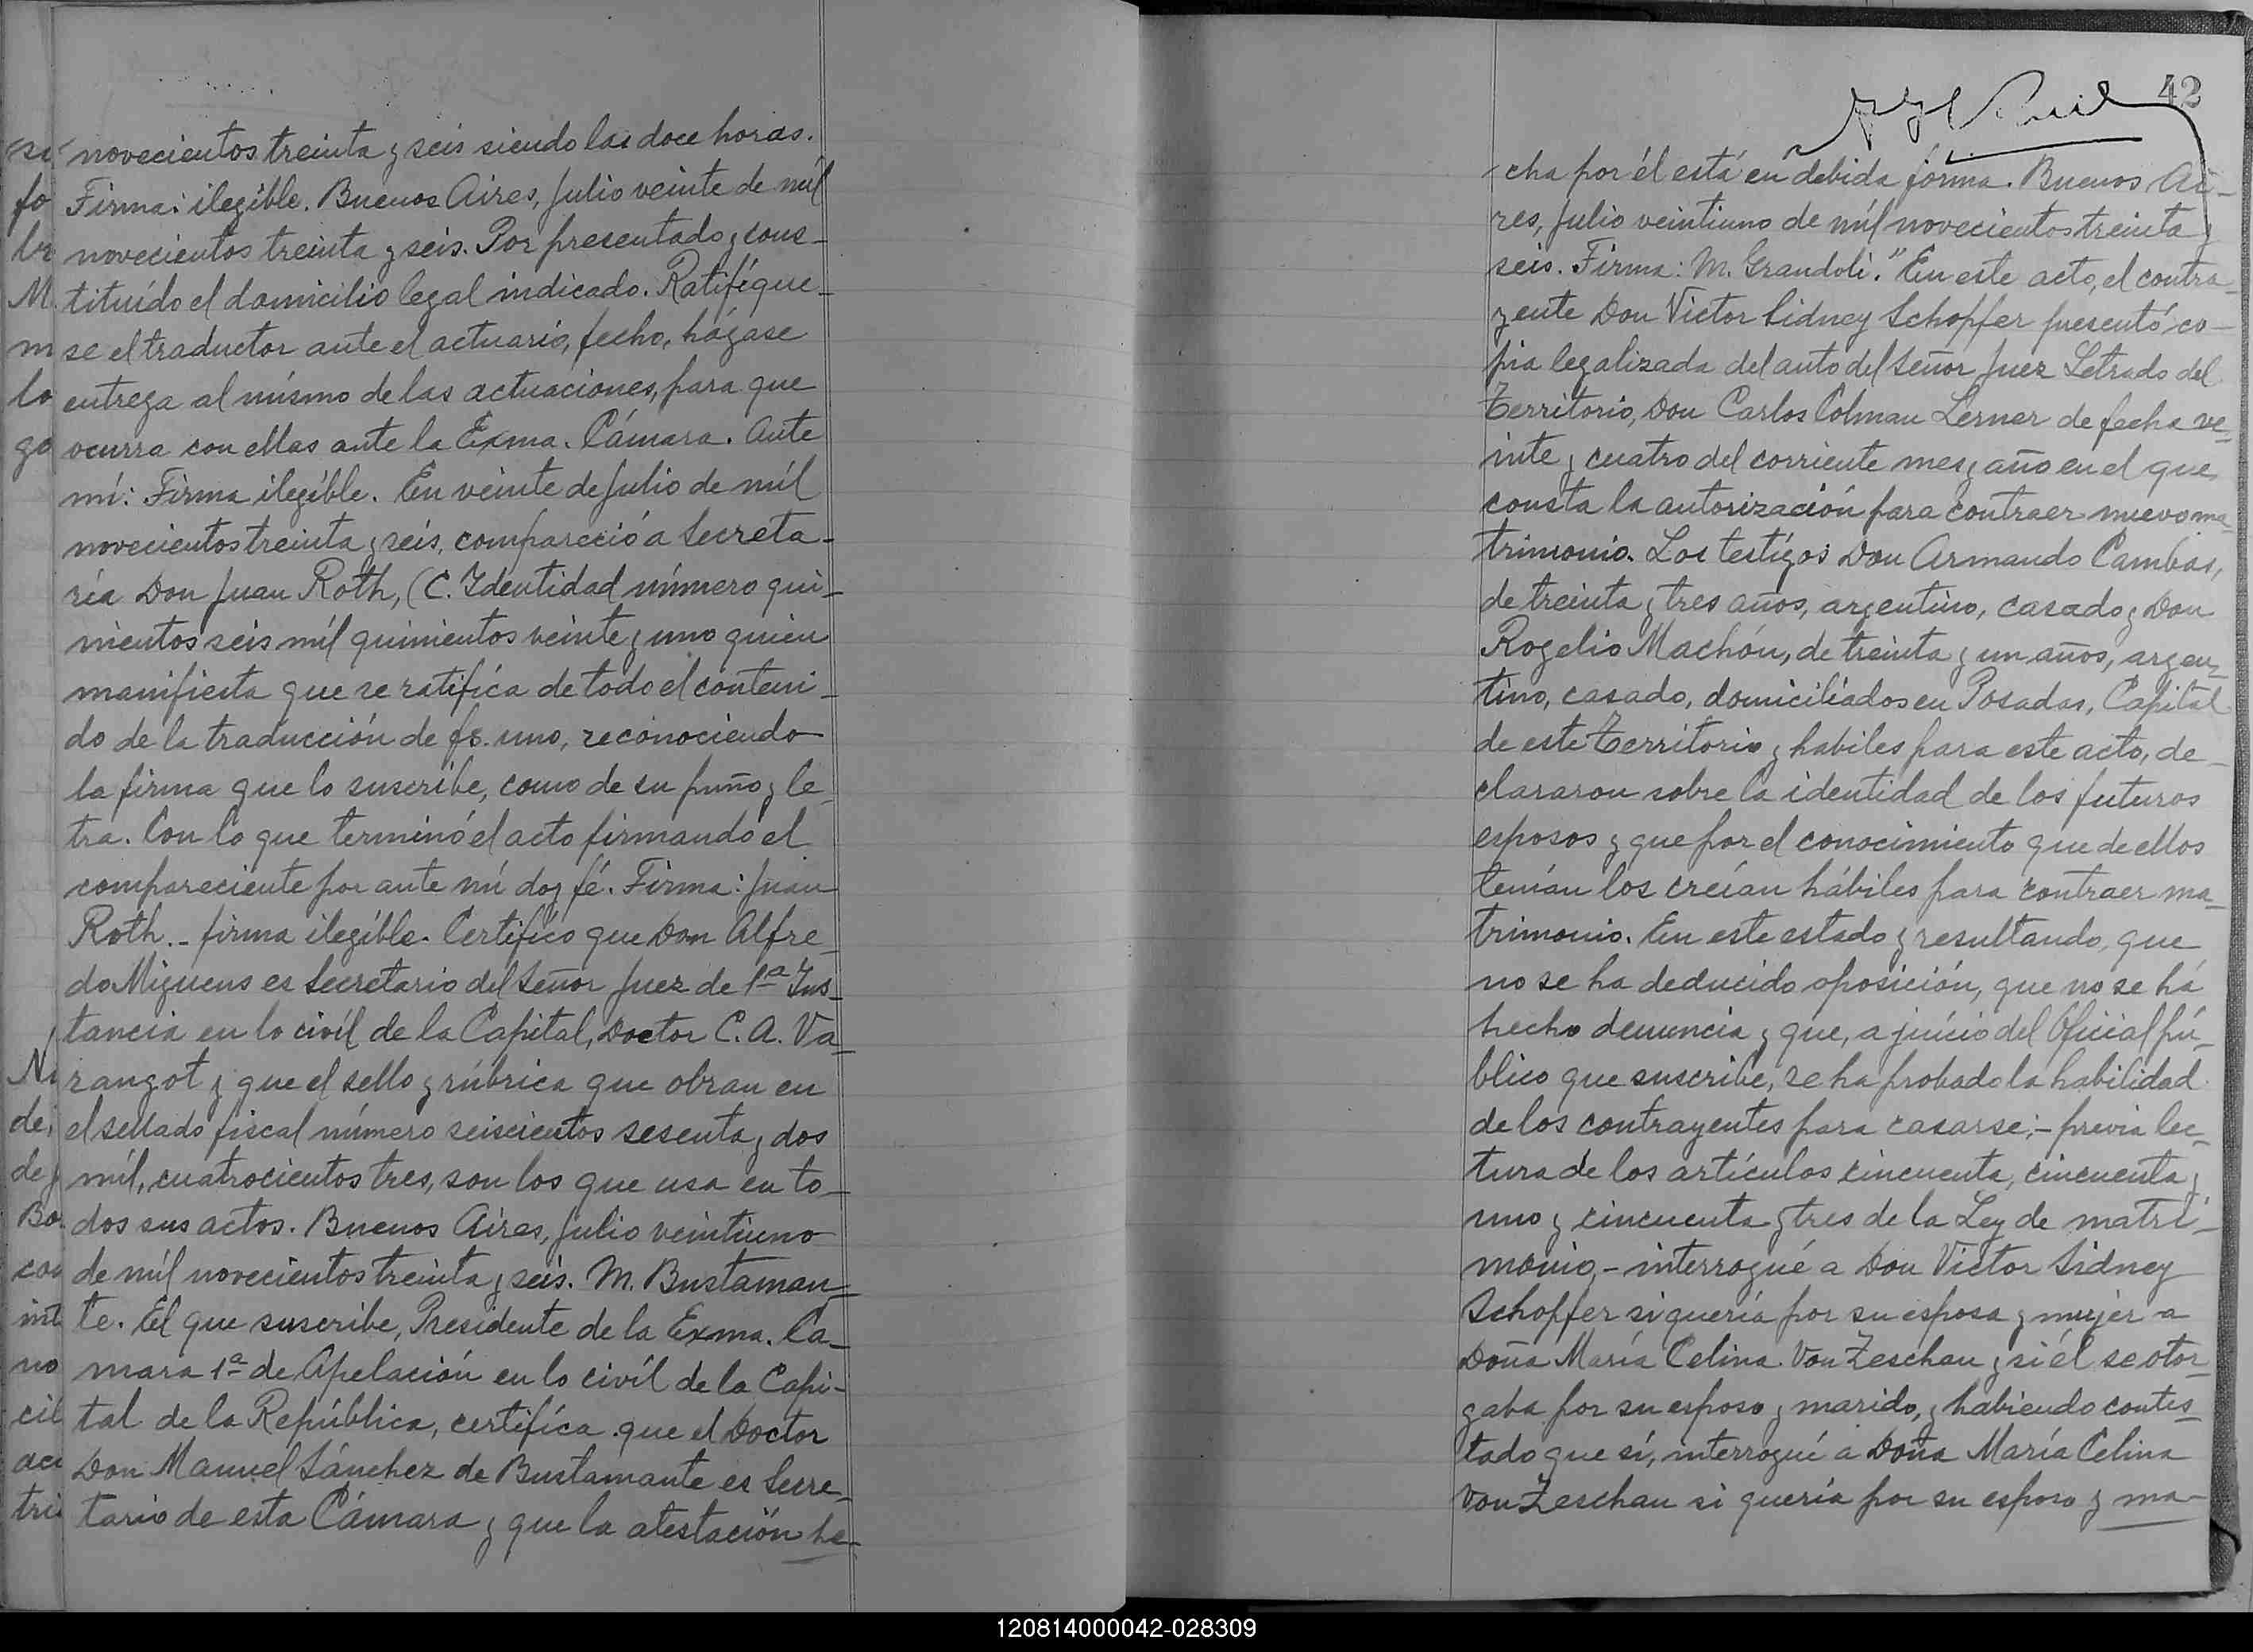 novecientos treinta y seis siendo las doce horas.
Firma: ilegible. Buenos Aires, Julio veinte de mil
novecientos treinta y seis. Por presentado y cons-
tituído el domicilio legal indicado. Ratifíque-
se el traductor ante el actuario, fecho, hágase
entrega al mismo de las actuaciones, para que
ocurra con ellas ante la Exma. Cámara. Ante
mí: Firma ilegíble. En veinte de Julio de mil
novecientos treinta y seis, compareció a Secreta-
ría Don Juan Roth, (C. Identidad número qui-
nientos seis mil quinientos veinte y uno quien
manifiesta que se ratifíca de todo el conteni-
do de la traducción de fs. uno, reconociendo
la firma que lo suscribe, como de su puño y le-
tra. Con lo que terminó el acto firmando el
compareciente por ante mí doy fé. Firma: Juan
Roth.- firma ilegíble. Certifíco que Don Alfre-
do Miguens es Secretario del Señor Juez de 1ª Ins-
tancia en lo civíl de la Capital, Doctor C. A. Va-
rangot y que el sello y rúbrica que obran en
el sellado fiscal número seiscientos sesenta y dos
mil, cuatrocientos tres, son los que usa en to-
dos sus actos. Buenos Aires, Julio veintiuno
de mil novecientos treinta y seis. M. Bustaman-
te. El que suscribe, Presidente de la Exma. Ca-
mara 1ª de Apelación en lo civíl de la Capi-
tal de la República, certifíca que el Doctor
Don Manuel Sánchez de Bustamante es Secre-
tario de esta Cámara y que la atestación he-
fo
br
M.
m
lo
go
de
Bo
con
int
no
cil
aci
tri
42
cha por él está en debida forma. Buenos Ai-
res, Julio veintiuno de mil novecientos treinta y
seis. Firma: M. Grandoli." En este acto, el contra-
yente Don Victor Sidney Schopfer presentó co-
pia legalizada del auto del Señor Juez Letrado del
Territorio, Don Carlos Colman Lerner de fecha ve-
inte y cuatro del corriente mes y año en el que
consta la autorización para contraer nuevo ma-
trimonio. Los testigos Don Armando Cambas,
de treinta y tres años, argentino, casado y Don
Rogelio Machón, de treinta y un años, argen-
tino, casado, domiciliados en Posadas, Capital
de este Territorio y habiles para este acto, de-
clararon sobre la identidad de los futuros
esposos y que por el conocimiento que de ellos
tenían los creían hábiles para contraer ma-
trimonio. En este estado y resultando, que
no se ha deducido oposición, que no se há
hecho denuncia y que, a juicio del Oficial pú-
blico que suscribe, se ha probado la habilidad
de los contrayentes para casarse;- previa lec-
tura de los artículos cincuenta, cincuenta y
uno y cincuenta y tres de la Ley de matri-
monio,- interrogué a Don Victor Sidney
Schopfer si quería por su esposa y mujer a
Doña María Celina Von Zeschau y si él se otor-
gaba por su esposo y marido, y habiendo contes-
tado que sí, interrogué a Doña María Celina
Von Zeschau si quería por su esposo y ma-
120814000042-028309